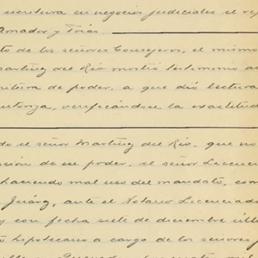 escritura en negocios judiciales el rep
Amador y Frías.
to de los señores Consejeros, el mismo
Martínez del Río mostró testimonio
critura de poder, a que dió lectura
Notario, verificándose la exactitud
do el señor Martínez del Río, que no
sión de su poder, el señor Licencia
haciendo mal uso del mandato, com
Juárez, ante el Notario Licenciado
y con fecha siete de diciembre últi
to hipotecario a cargo de los señores